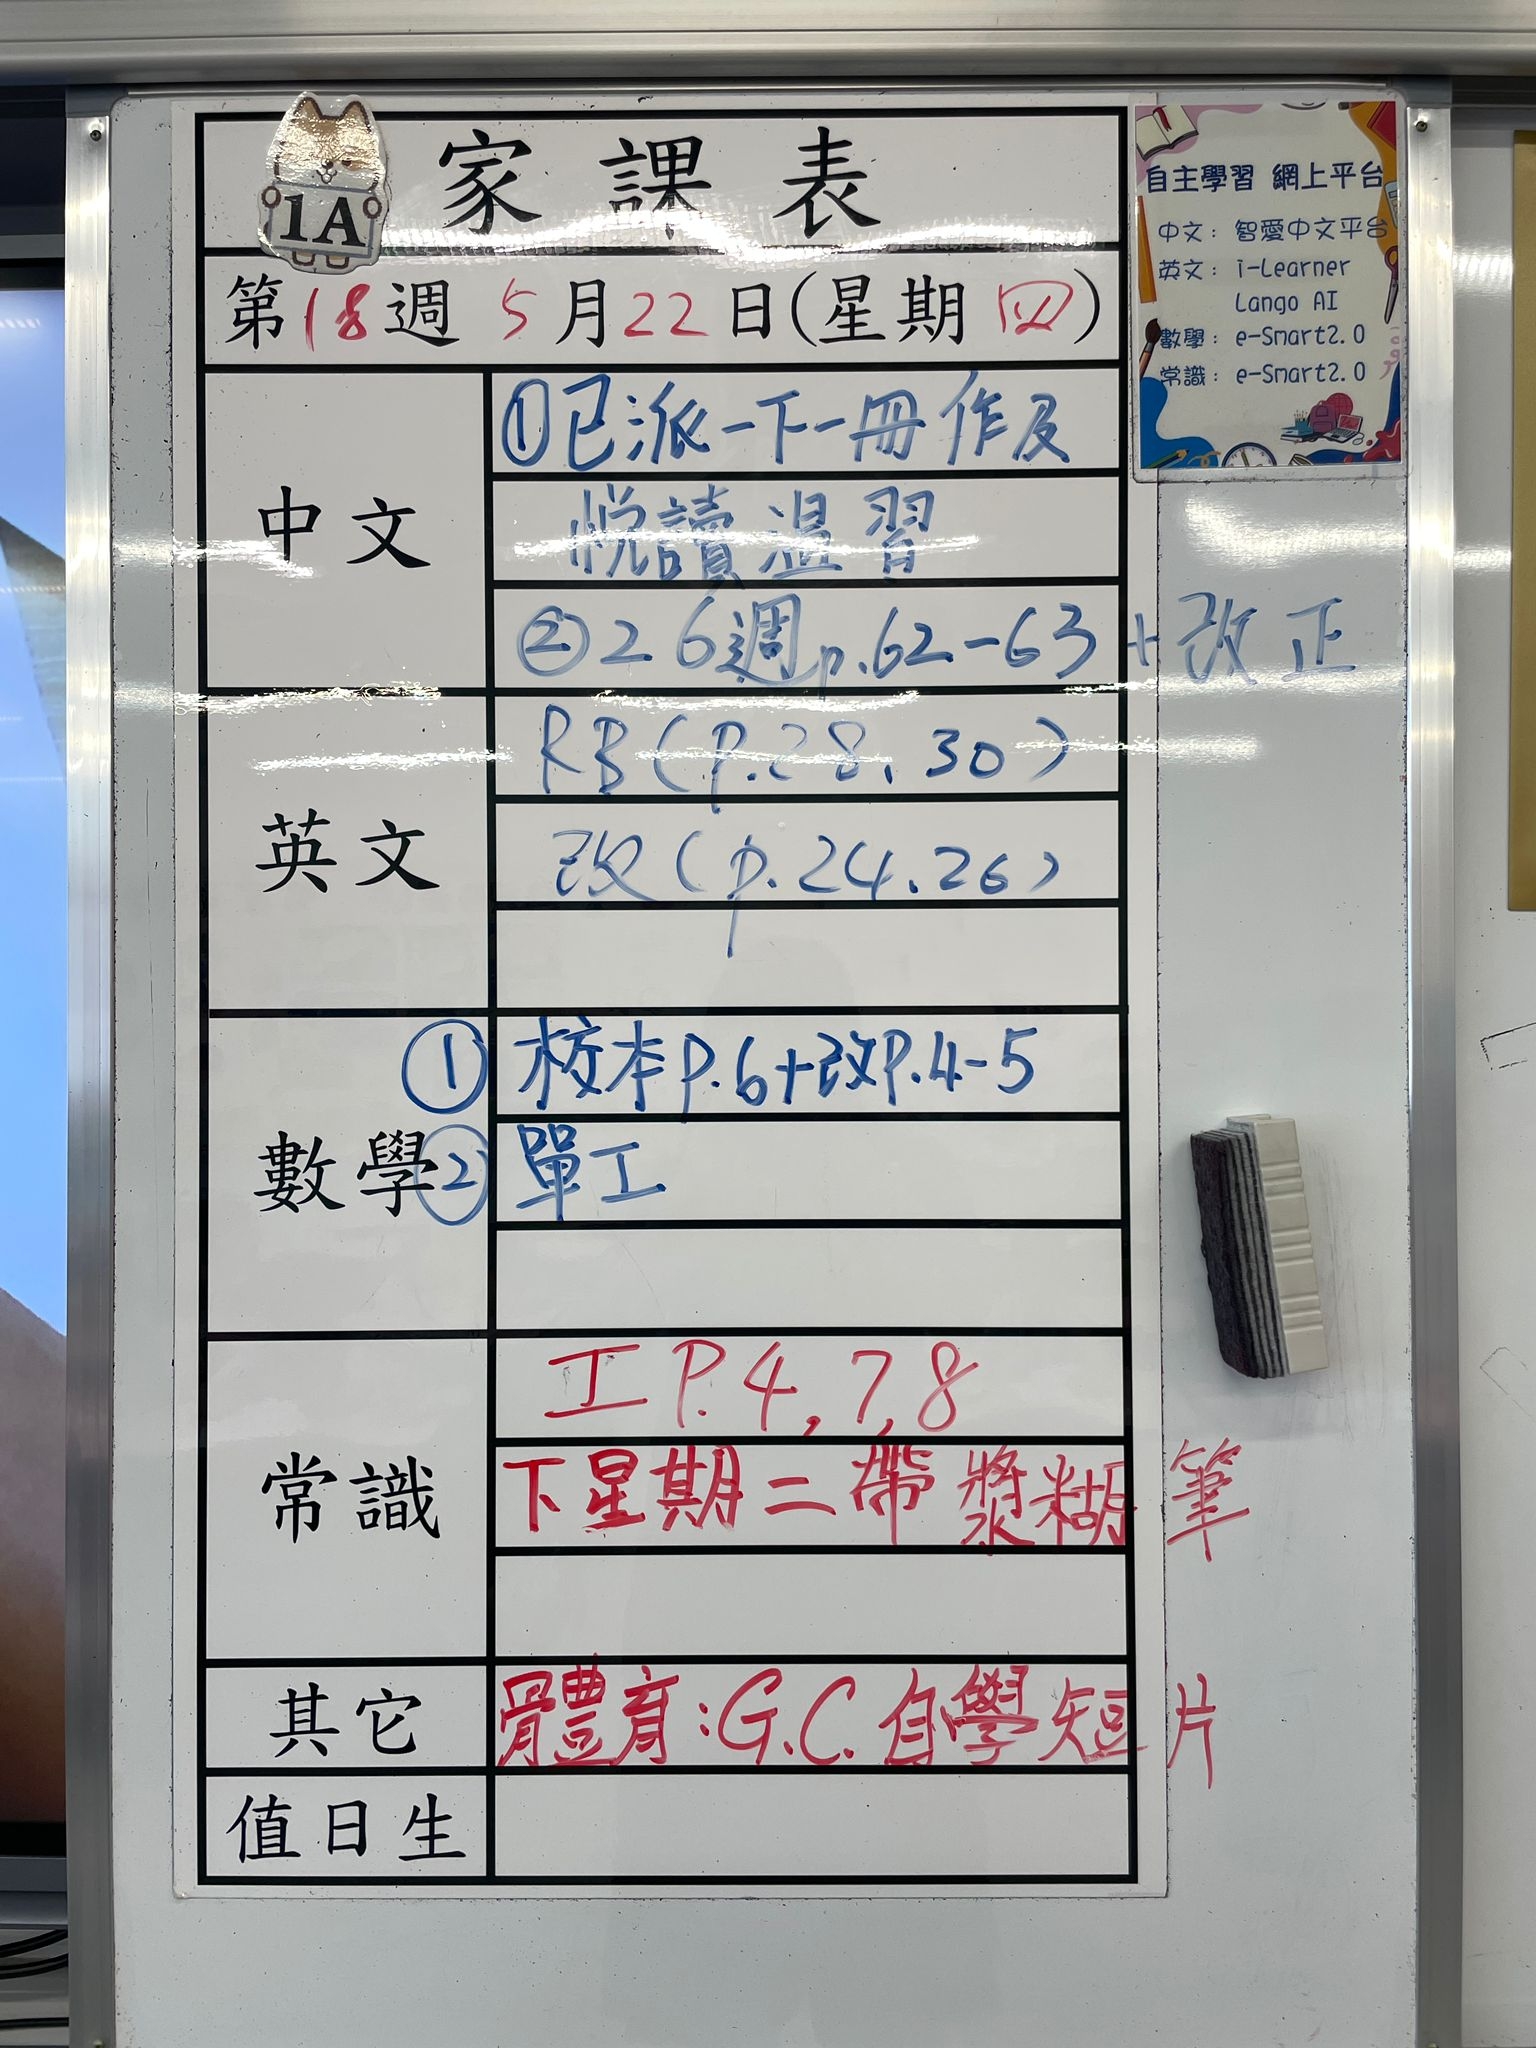 1A
家課表
第18週 5月22日(星期四)
中文
①已派一下一冊作及
悅讀温習
②26週p.62-63+改正
英文
RB(p.28、30)
改(p.24.26)
數學
① 校本P.6+改P.4-5
② 單工
常識
工P.4,7,8
下星期二帶漿糊筆
其它
體育:G.C.自學短片
值日生
自主學習 網上平台
中文: 智愛中文平台
英文: i-Learner
Lango AI
數學: e-Smart2.0
常識: e-Smart2.0